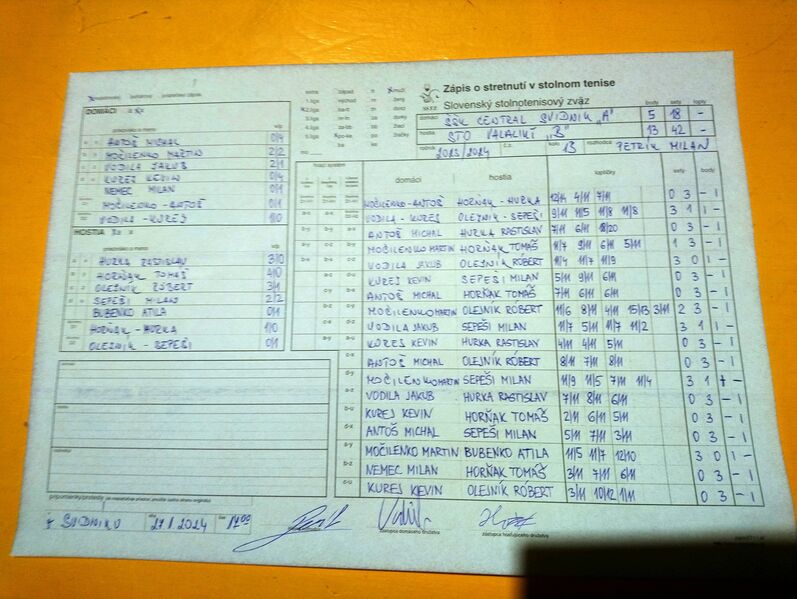 Zápis o stretnutí v stolnom tenise
Slovenský stolnotenisový zväz
body sety
domáci ŠŠK CENTRAL SVIDNÍK „A" 5 18 -
hostia STO VALALIKY „B" 13 42 -
ročník 2023/2024 kolo 13 rozhodca PETRÍK MILAN
DOMÁCI
priezvisko a meno v/p
ANTOŠ MICHAL 0/4
MOČILENKO MARTIN 2/2
VODILA JAKUB 2/1
KUREJ KEVIN 0/4
NEMEC MILAN 0/1
MOČILENKO - ANTOŠ 0/1
VODILA - KUREJ 1/0
HOSTIA
priezvisko a meno v/p
HURKA RASTISLAV 3/0
HORŇAK TOMÁŠ 4/0
OLEJNÍK RÓBERT 3/1
SEPEŠI MILAN 2/2
BUBENKO ATILA 0/1
HORŇAK - HURKA 1/0
OLEJNIK - SEPEŠI 0/1
domáci hostia loptičky sety body
MOČILENKO-ANTOŠ HORŇAK - HURKA 12/14 4/11 7/11 0 3 - 1
VODILA - KUREJ OLEJNIK - SEPEŠI 9/11 11/5 11/8 11/8 3 1 1 -
ANTOŠ MICHAL HURKA RASTISLAV 7/11 6/11 18/20 0 3 - 1
MOČILENKO MARTIN HORŇAK TOMÁŠ 11/7 9/11 6/11 5/11 1 3 - 1
VODILA JAKUB OLEJNÍK RÓBERT 11/4 11/7 11/9 3 0 1 -
KUREJ KEVIN SEPEŠI MILAN 5/11 9/11 6/11 0 3 - 1
ANTOŠ MICHAL HORŇÁK TOMÁŠ 7/11 6/11 6/11 0 3 - 1
MOČILENKO MARTIN OLEJNÍK RÓBERT 11/6 8/11 4/11 15/13 3/11 2 3 - 1
VODILA JAKUB SEPEŠI MILAN 11/7 5/11 11/7 11/2 3 1 1 -
KUREJ KEVIN HURKA RASTISLAV 4/11 4/11 5/11 0 3 - 1
ANTOŠ MICHAL OLEJNÍK RÓBERT 8/11 7/11 8/11 0 3 - 1
MOČILENKO MARTIN SEPEŠI MILAN 11/9 11/5 7/11 11/4 3 1
VODILA JAKUB HURKA RASTISLAV 7/11 8/11 6/11 0 3 - 1
KUREJ KEVIN HORŇAK TOMÁŠ 2/11 6/11 5/11 0 3 - 1
ANTOŠ MICHAL SEPEŠI MILAN 5/11 7/11 3/11 0 3 - 1
MOČILENKO MARTIN BUBENKO ATILA 11/5 11/7 12/10 3 0 1 -
NEMEC MILAN HORŇAK TOMÁŠ 3/11 7/11 6/11 0 3 - 1
KUREJ KEVIN OLEJNÍK RÓBERT 3/11 10/12 1/11 0 3 - 1
pripomienky/protesty
v SVIDNÍKU 27.1.2024 17.00
zástupca domáceho družstva
zástupca hosťujúceho družstva